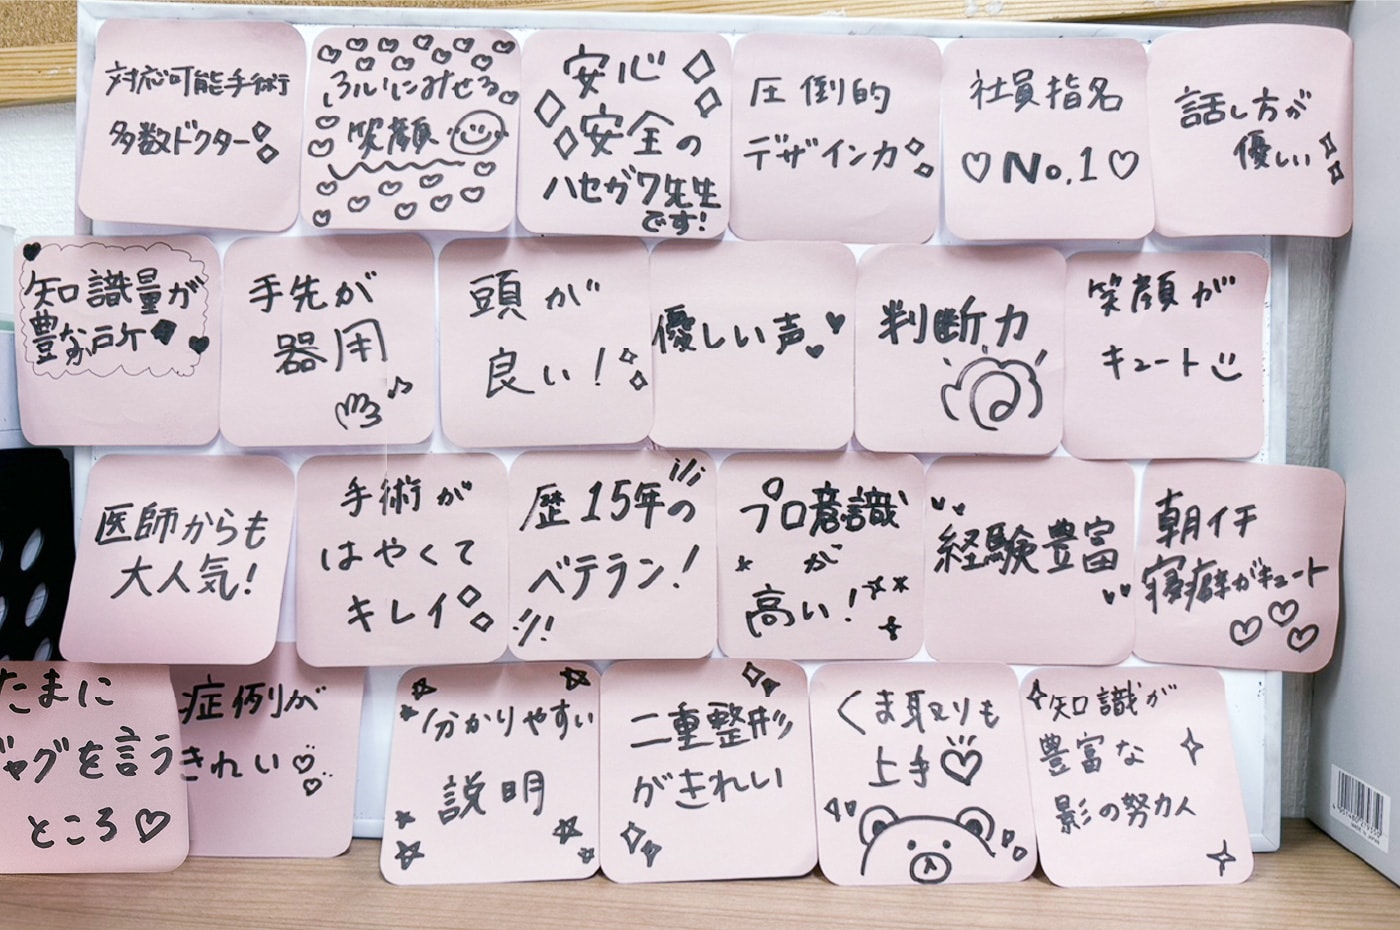 対応可能手術
多数ドクター
ふいにみせる
笑顔
安心
安全の
ハセガワ先生
です!
圧倒的
デザイン力
社員指名
♡No.1♡
話し方が
優しい
知識量が
豊かな所
手先が
器用
頭が
良い!
優しい声
判断力
笑顔が
キュート
医師からも
大人気!
手術が
はやくて
キレイ
歴15年の
ベテラン!
プロ意識
が
高い!
経験豊富
朝イチ
寝癖がキュート
たまに
ギャグを言う
ところ♡
症例が
きれい
分かりやすい
説明
二重整形
がきれい
くま取りも
上手♡
知識が
豊富な
影の努力人